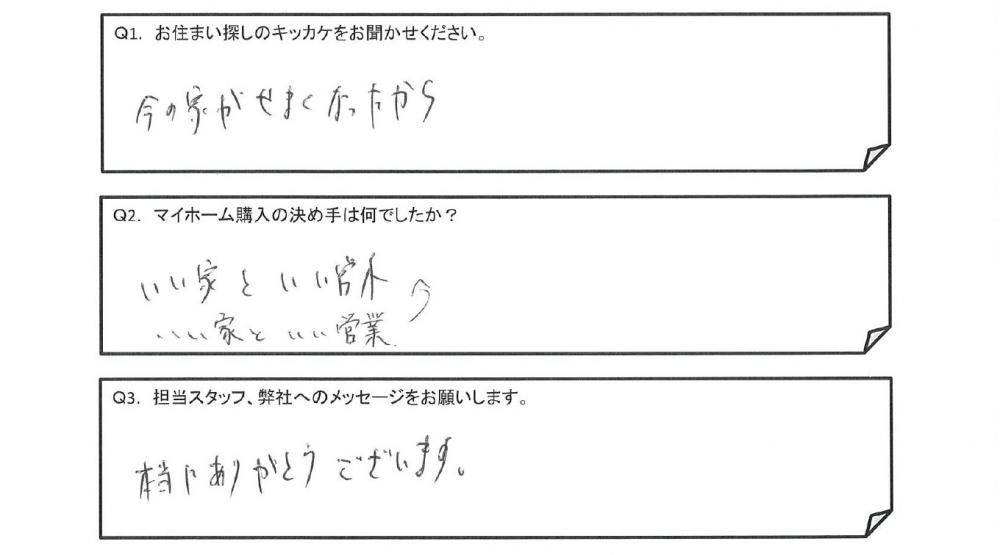 Q1. お住まい探しのキッカケをお聞かせください。
今の家がせまくなったから
Q2. マイホーム購入の決め手は何でしたか？
いい家といい営
いい家といい営業
Q3. 担当スタッフ、弊社へのメッセージをお願いします。
本当にありがとうございます。